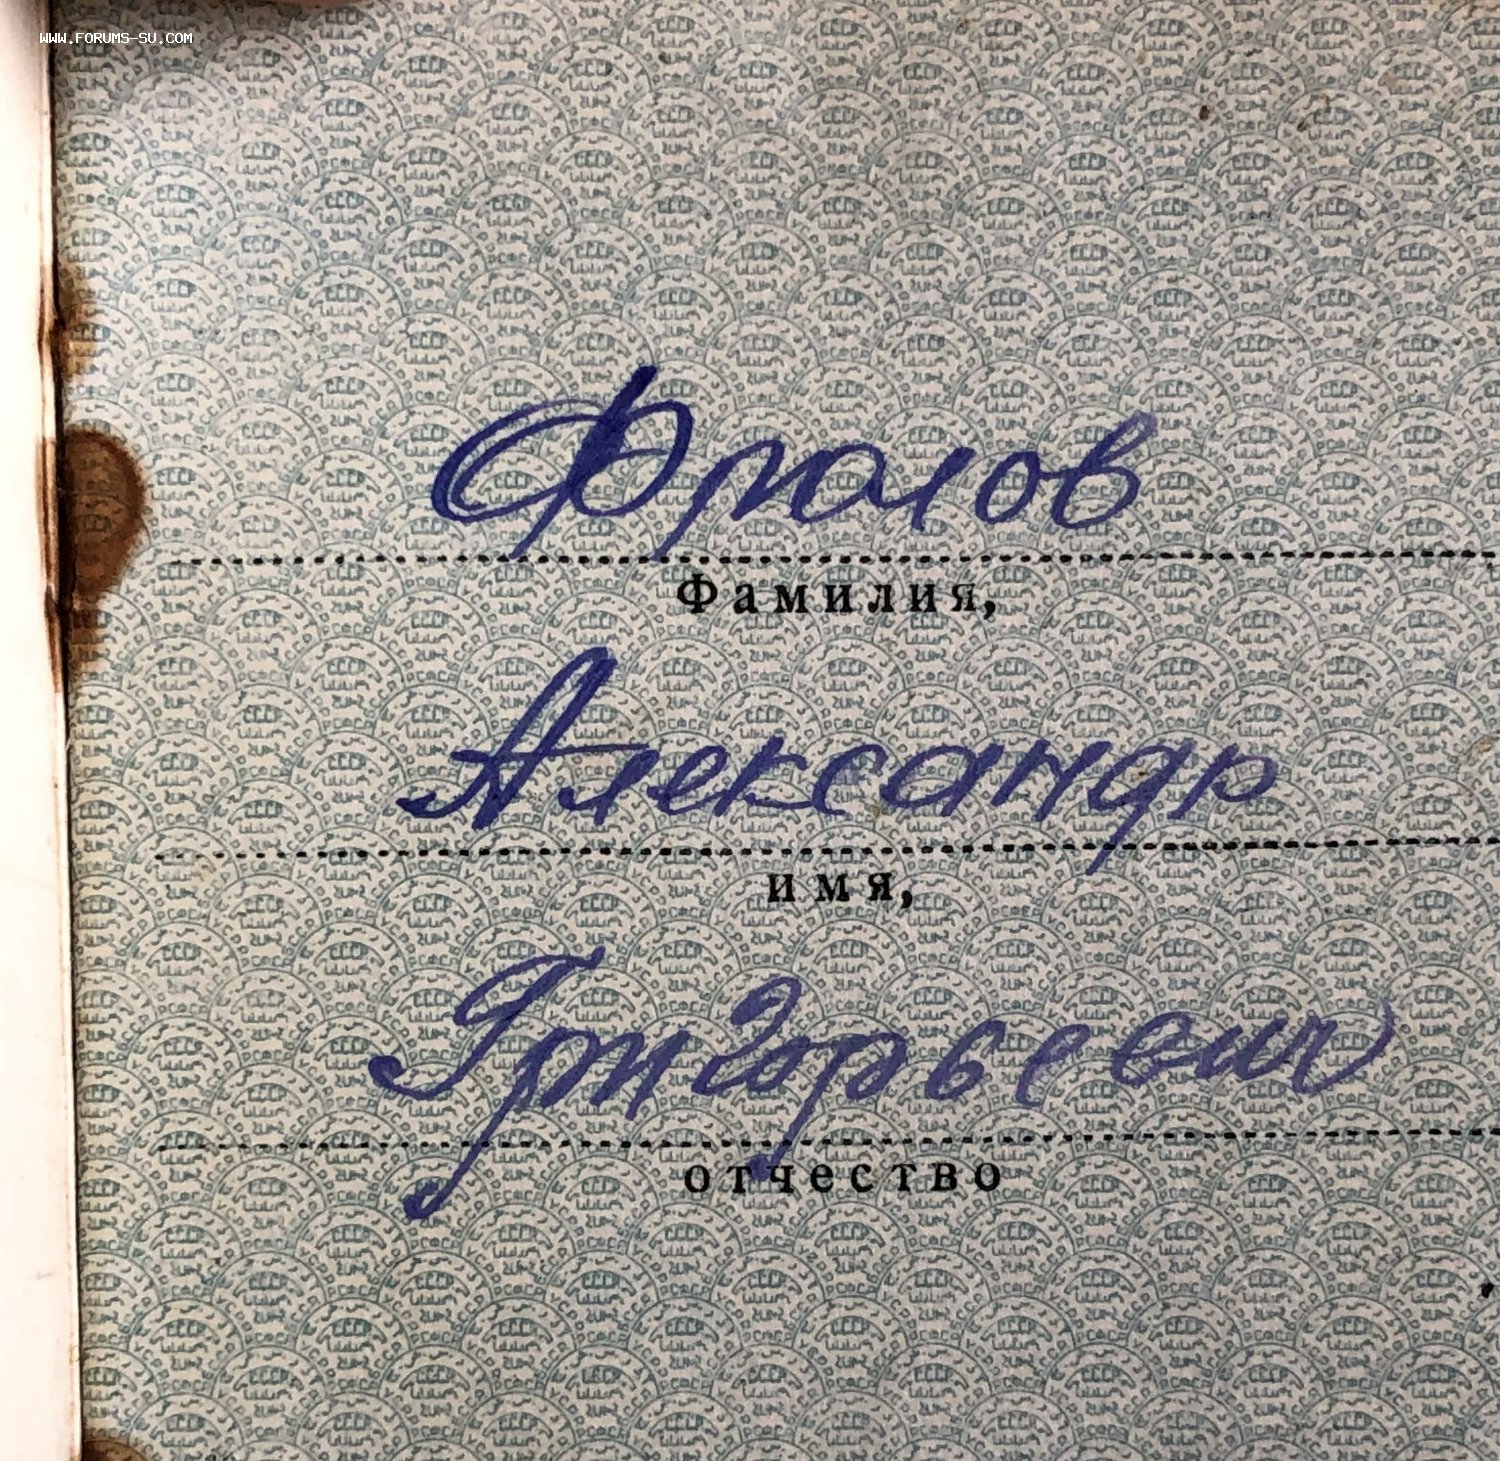 WWW.FORUMS-SU.COM
Фролов
Фамилия,
Александр
имя,
Григорьевич
отчество